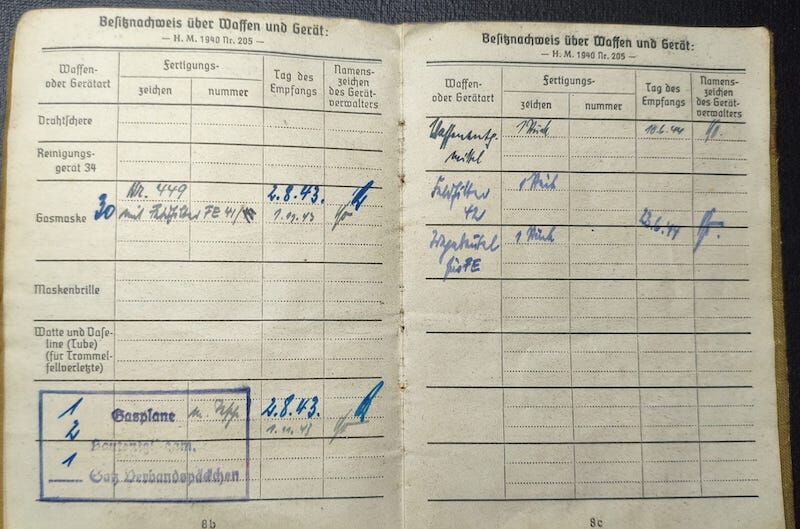 Besitznachweis über Waffen und Gerät:
— H. M. 1940 Nr. 205 —
Waffen- oder Gerätart
Fertigungs-
zeichen
nummer
Tag des Empfangs
Namens-
zeichen
des Gerät-
verwalters
Drahtschere
Reinigungs-
gerät 34
Nr. 449
2.8.43.
Gasmaske 30
mit Feldfilter FE 41/
1.11.43
Maskenbrille
Watte und Vase-
line (Tube)
(für Trommel-
fellverletzte)
1 Gasplane
2.8.43.
2
1.11.43
1
Gas Verbandpäckchen
8b
Besitznachweis über Waffen und Gerät:
— H. M. 1940 Nr. 205 —
Waffen-
oder Gerätart
Fertigungs-
zeichen
nummer
Tag des
Empfangs
Namens-
zeichen
des Gerät-
verwalters
Waffenentg.
1 Stück
10.6.44
mittel
Feldfilter
1 Stück
42
23.6.44
1 Stück
für FE
8c